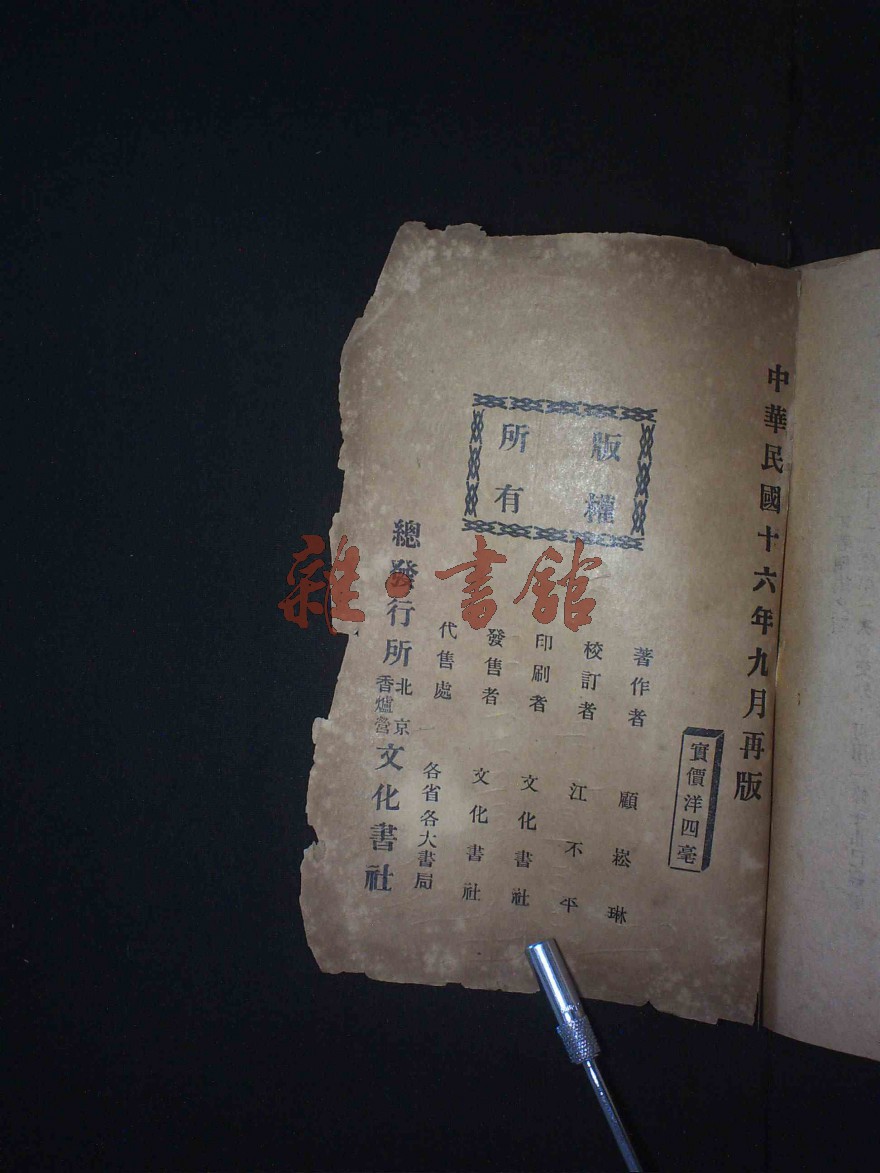 中華民國十六年九月再版
實價洋四毫
版權
所有
著作者 顧崧琳
校訂者 江不平
印刷者 文化書社
發售者 文化書社
代售處 各省各大書局
總發行所 北京香爐營 文化書社
雜·書館